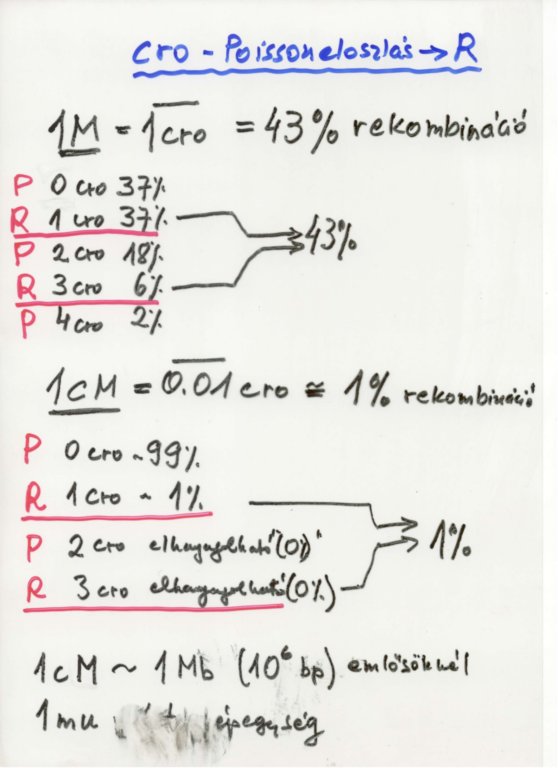 cro - Poissoneloszlás → R
1M = 1cro = 43% rekombináció
P 0 cro 37%
R 1 cro 37%
43%
P 2 cro 18%
R 3 cro 6%
P 4 cro 2%
1cM = 0.01 cro ≅ 1% rekombináció
P 0 cro ~99%
R 1 cro ~ 1%
1%
P 2 cro elhanyagolható (0%)
R 3 cro elhanyagolható (0%)
1cM ~ 1Mb (10⁶ bp) emlősöknél
1mu